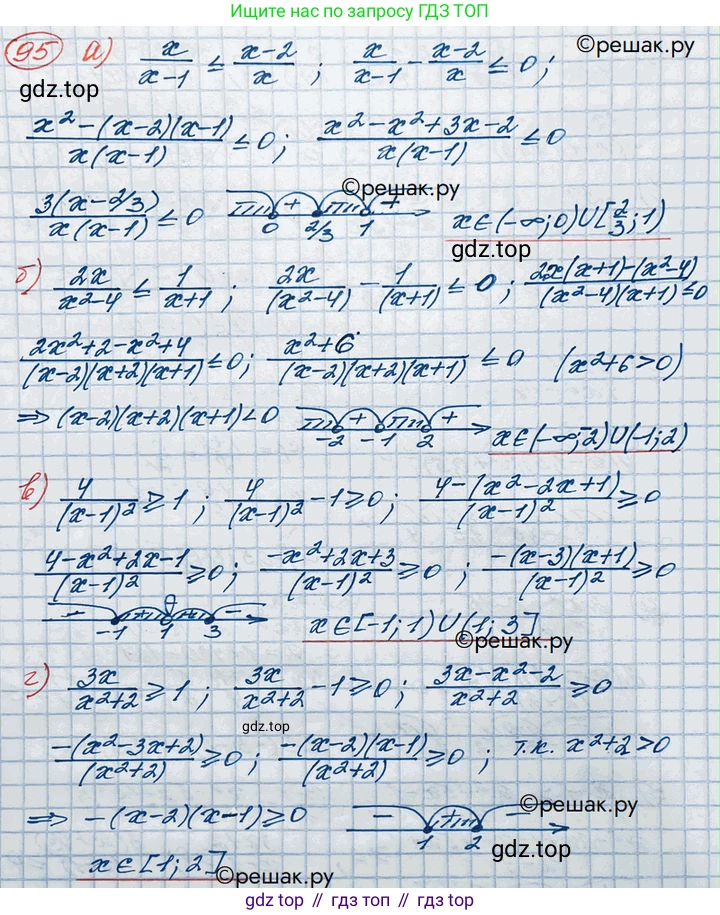 Ищите нас по запросу ГДЗ ТОП
95 а) x/(x-1) ≤ (x-2)/x ; x/(x-1) - (x-2)/x ≤ 0 ;
©reшак.ру
гдз.top
(x² - (x-2)(x-1))/(x(x-1)) ≤ 0 ; (x² - x² + 3x - 2)/(x(x-1)) ≤ 0
©reшак.ру
3(x - 2/3)/(x(x-1)) ≤ 0 + + 0 2/3 1 x∈(-∞; 0)∪[2/3; 1)
гдз.top
б) 2x/(x²-4) ≤ 1/(x+1) ; 2x/(x²-4) - 1/(x+1) ≤ 0 ; (2x(x+1)-(x²-4))/((x²-4)(x+1)) ≤ 0
(2x²+2-x²+4)/((x-2)(x+2)(x+1)) ≤ 0 ; (x²+6)/((x-2)(x+2)(x+1)) ≤ 0 (x²+6>0)
⇒ (x-2)(x+2)(x+1) < 0 + + -2 -1 2 x∈(-∞;-2)∪(-1;2)
в) 4/(x-1)² ≥ 1 ; 4/(x-1)² - 1 ≥ 0 ; (4-(x²-2x+1))/(x-1)² ≥ 0
(4-x²+2x-1)/(x-1)² ≥ 0 ; (-x²+2x+3)/(x-1)² ≥ 0 ; -(x-3)(x+1)/(x-1)² ≥ 0
- + + - -1 1 3 x∈[-1; 1)∪(1; 3]
©reшак.ру
г) 3x/(x²+2) ≥ 1 ; 3x/(x²+2) - 1 ≥ 0 ; (3x-x²-2)/(x²+2) ≥ 0
гдз.top
-(x²-3x+2)/(x²+2) ≥ 0 ; -(x-2)(x-1)/(x²+2) ≥ 0 ; т.к. x²+2>0
©reшак.ру
⇒ -(x-2)(x-1) ≥ 0 - + - 1 2
гдз.top
x∈[1; 2]
©reшак.ру
гдз.top // гдз.top // гдз.top